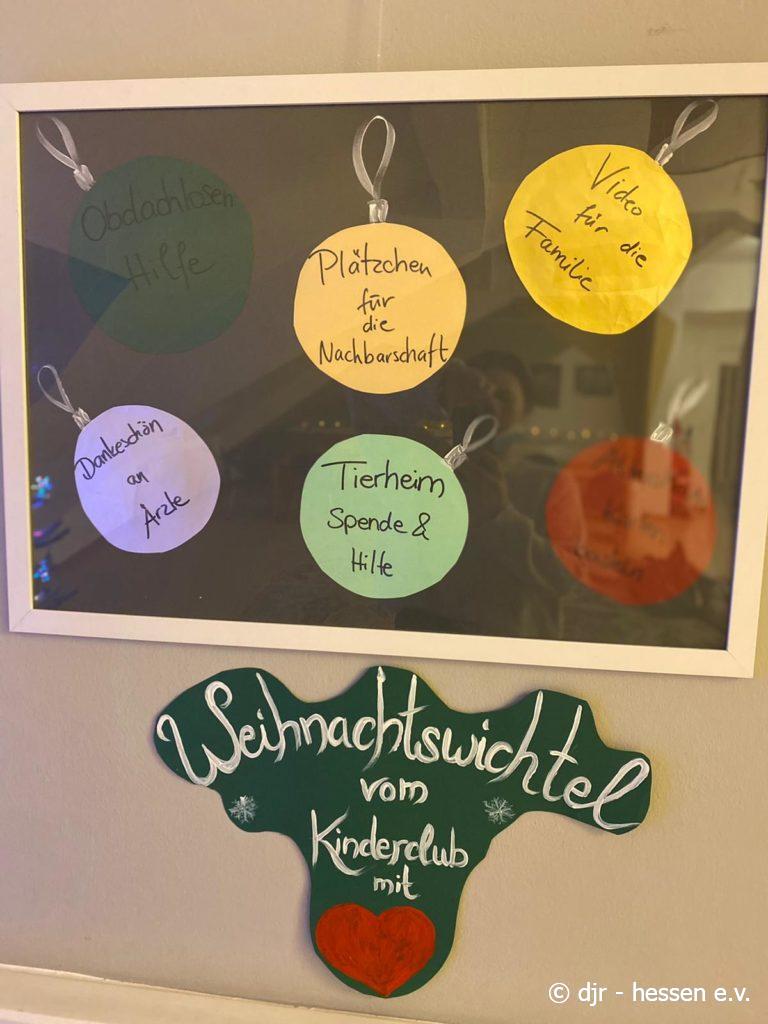 Obdachlosen
Hilfe
Plätzchen
für
die
Nachbarschaft
Video
für die
Familie
Dankeschön
an
Ärzte
Tierheim
Spende &
Hilfe
Karten
Weihnachtswichtel
vom
Kinderclub
mit
© djr - hessen e.v.